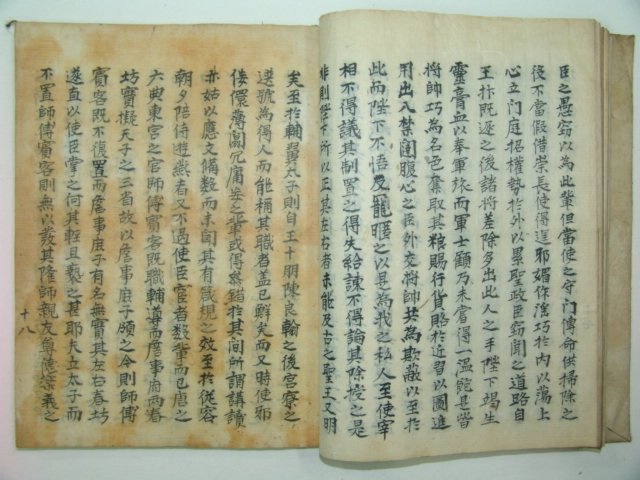 臣之愚竊以為此輩但當使之守門傳命供掃除之
役不當假借崇長使得逞邪媚作淫巧於內以蕩上
心立門庭招權勢於外以累聖政臣竊聞之道路自
王抃既逐之後諸將差除多出此人之手陛下竭生
靈膏血以奉軍旅而軍士顧乃未嘗得一溫飽是皆
將帥巧為名色奪取其粮賜行貨賂於近習以圖進
用出入禁闥腹心之臣外交將帥共為欺蔽以至於
此而陛下不悟反寵暱之以是為我之私人至使宰
相不得議其制置之得失給諫不得論其除授之是
非則陛下所以正其左右者未能及古之聖王又明
矣至於輔翼太子則自王十朋陳良翰之後宮寮之
選號為得人而能稱其職者盖已鮮矣而又時使邪
佞儇薄闒冗庸妄之輩或得參錯於其間所謂講讀
亦姑以應文備數而未聞其有箴規之效至於從容
朝夕陪侍遊燕者又不過使臣宦者數輩而已唐之
六典東宮之官師傅賓客既職輔導而詹事府兩春
坊實擬天子之三省故以詹事庶子領之今則師傅
賓客既不復置而詹事庶子有名無實其左右春坊
遂直以使臣掌之何其輕且褻之甚耶夫立太子而
不置師傅賓客則無以發其隆師親友尊德樂義之
十八